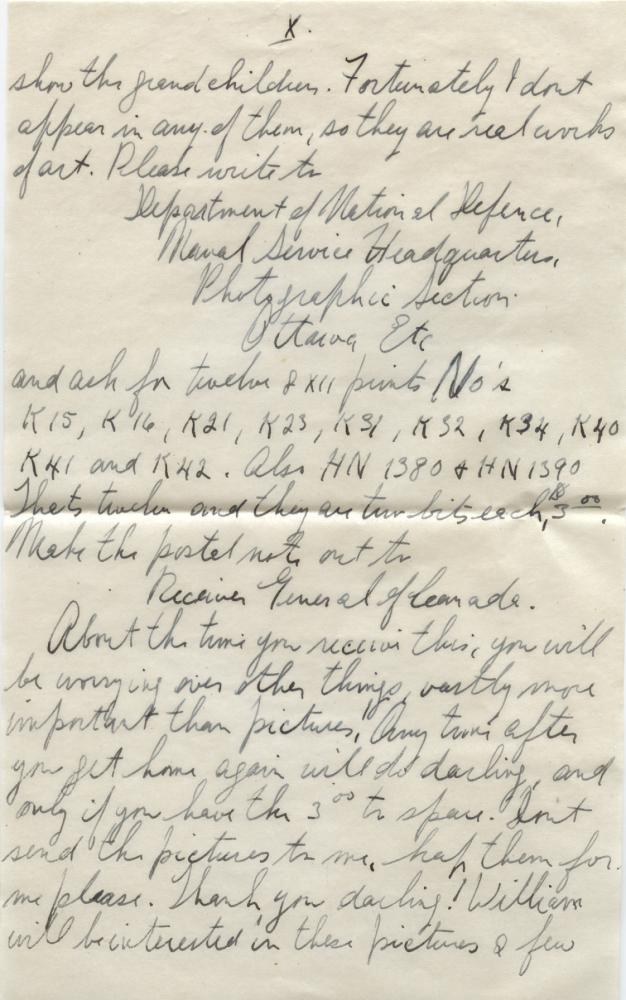 X.
show the grandchildren. Fortunately I dont
appear in any of them, so they are real works
of art. Please write to
Department of National Defence,
Naval Service Headquarters,
Photographic Section.
Ottawa Etc
and ask for twelve 8 x 11 prints No's
K15, K16, K21, K23, K31, K32, K34, K40
K41 and K42. Also HN 1380 & HN 1390
Thats twelve and they are two bits each, $3.00.
Make the postal note out to
Receiver General of Canada.
About the time you receive this, you will
be worrying over other things, vastly more
important than pictures! Any time after
you get home again will do darling, and
only if you have the 3 00 to spare. Dont
send the pictures to me, keep them for
me please. Thank you darling! William
will be interested in these pictures & few